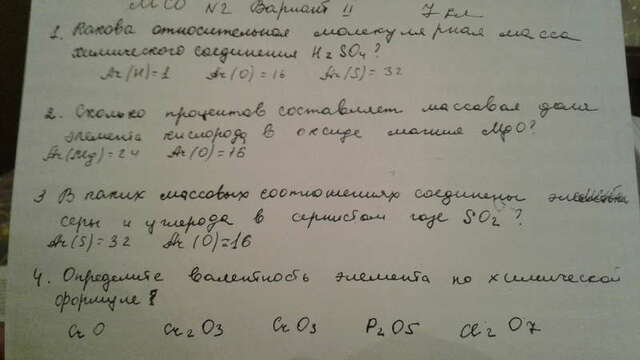 МСО N2 Вариант II 7 кл
1. Какова относительная молекулярная масса
химического соединения H2SO4?
Ar(H)=1 Ar(O)=16 Ar(S)=32
2. Сколько процентов составляет массовая доля
элемента кислорода в оксиде магния MgO?
Ar(Mg)=24 Ar(O)=16
3 В каких массовых соотношениях соединены элементы
серы и углерода в сернистом газе SO2?
Ar(S)=32 Ar(O)=16
4. Определите валентность элемента по химической
формуле?
CrO Cr2O3 CrO3 P2O5 Cl2O7